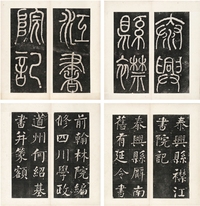 泰興
縣襟
江書
院記
泰興縣襟江
書院記
泰興縣廨南
舊有延令書
前翰林院編
修四川學政
道州何紹基
書并篆額